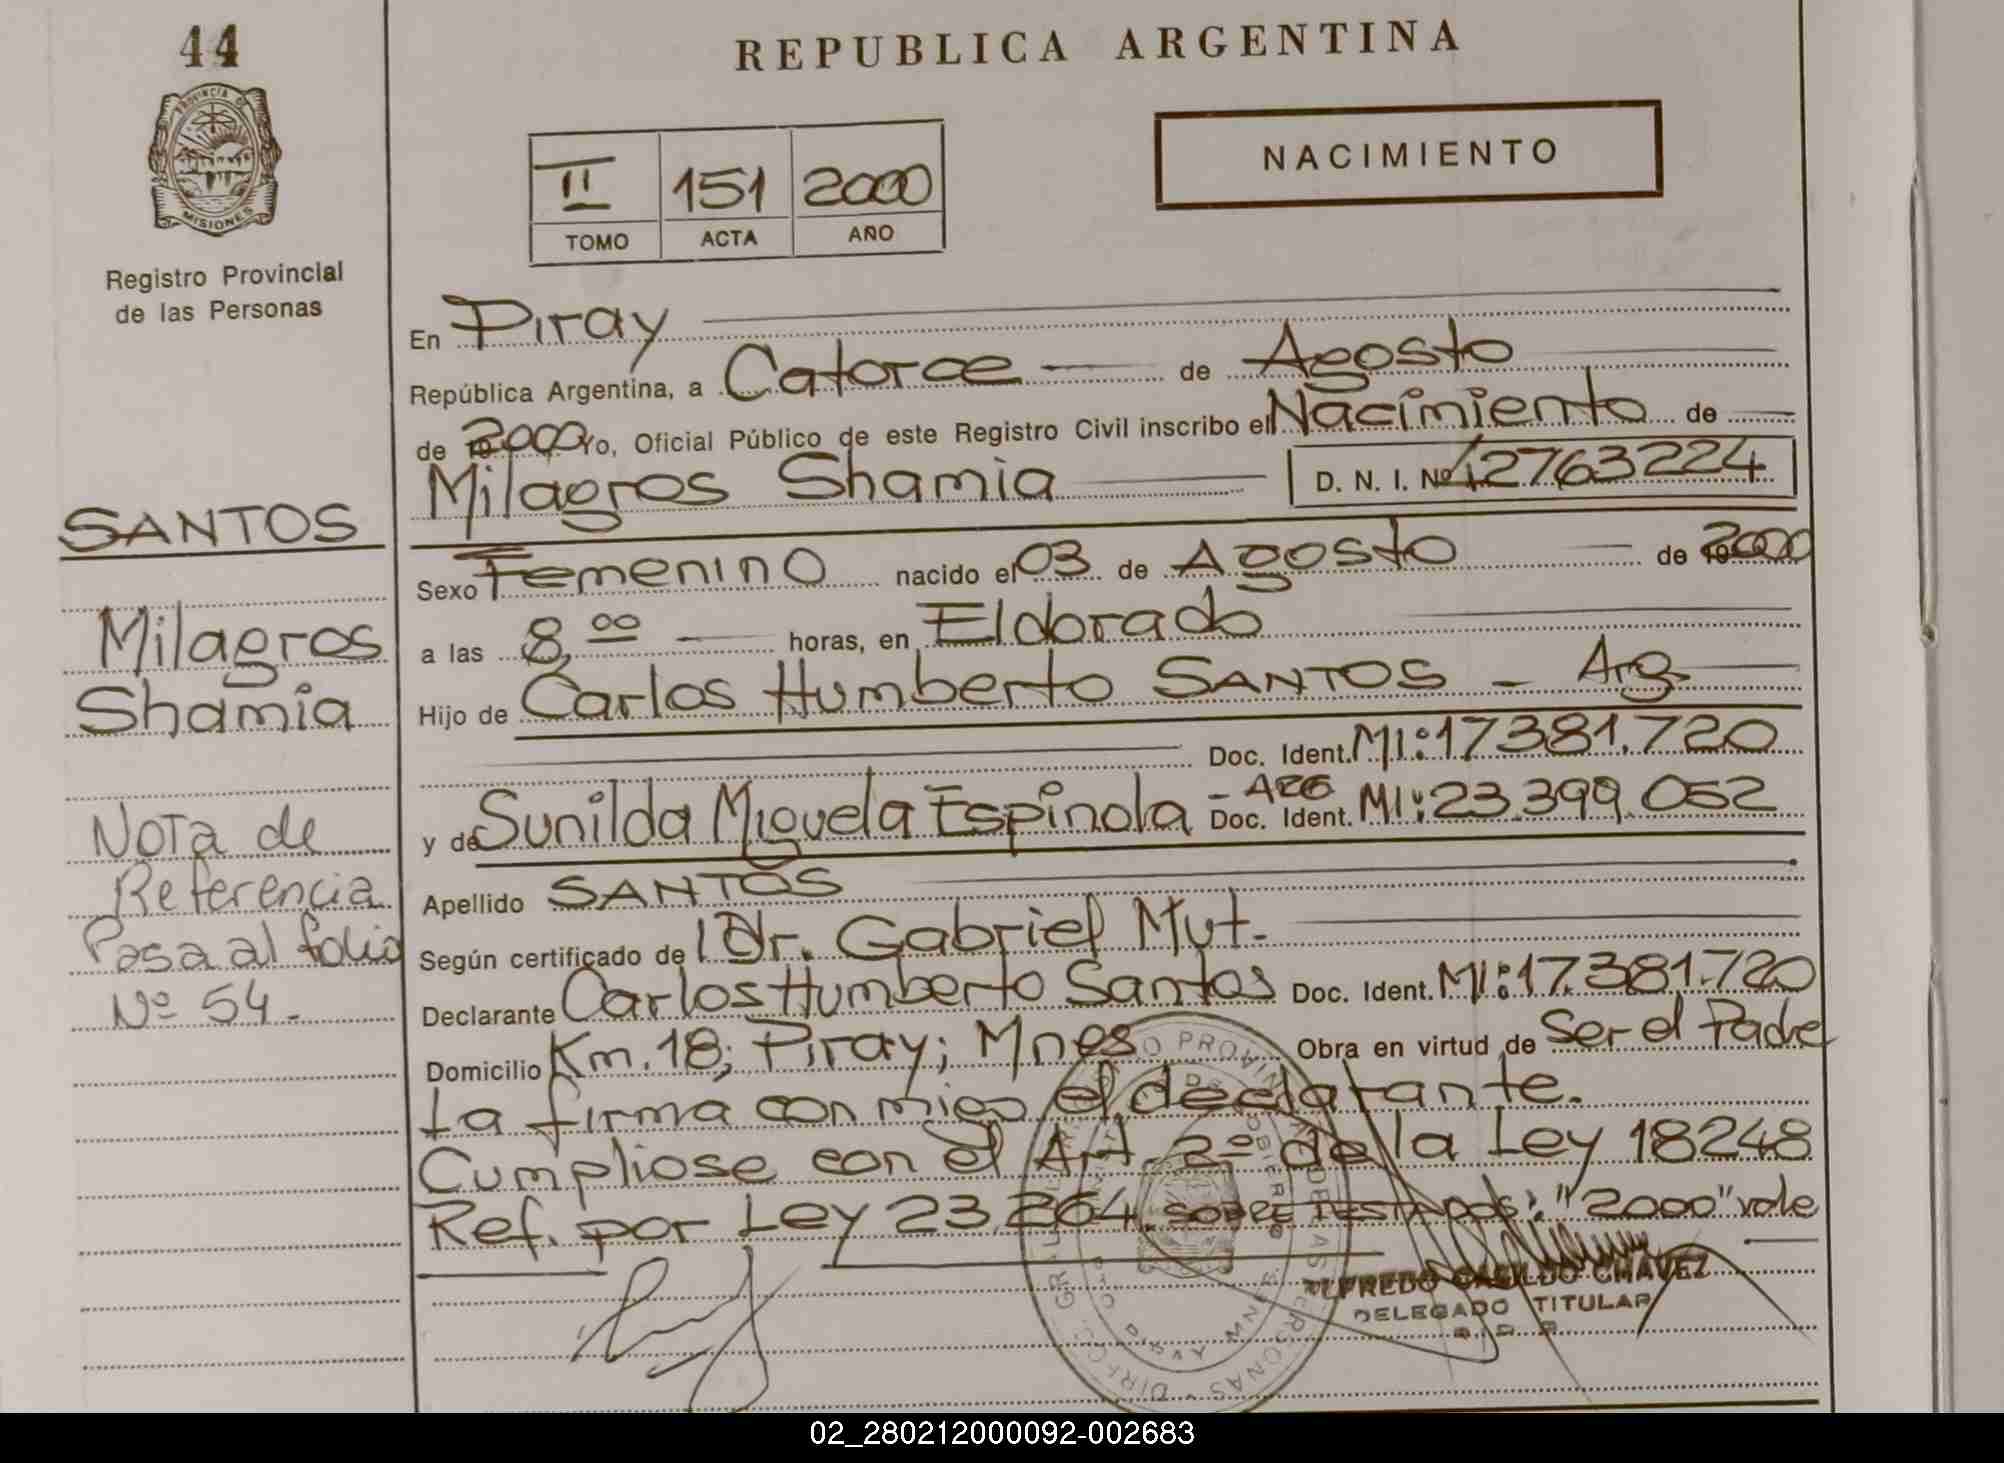 44
PROVINCIA DE
MISIONES
Registro Provincial
de las Personas
SANTOS
Milagros
Shamia
Nota de
Referencia
Pasa al folio
Nº 54.-
REPUBLICA ARGENTINA
II 151 2000
TOMO ACTA AÑO
NACIMIENTO
En Piray
República Argentina, a Catorce de Agosto
de 2000 Yo, Oficial Público de este Registro Civil inscribo el Nacimiento de
Milagros Shamia D. N. I. Nº 42763224
Sexo Femenino nacido el 03 de Agosto de 2000
a las 8,00 horas, en Eldorado
Hijo de Carlos Humberto SANTOS - Arg.
Doc. Ident. MI:17381.720
y de Sunilda Miguela Espinola - ARG Doc. Ident. MI:23.399.052
Apellido SANTOS
Según certificado de Dr. Gabriel Mut.
Declarante Carlos Humberto Santos Doc. Ident. MI:17.381.720
Domicilio Km. 18; Piray; Mnes Obra en virtud de Ser el Padre
La firma conmigo el declarante.
Cumpliose con el Art. 2º de la Ley 18248
Ref. por Ley 23.264. SOBRE TESTADOS: "2000" vale
ALFREDO CASILDO CHAVEZ
DELEGADO TITULAR
PIRAY MNES
02_280212000092-002683